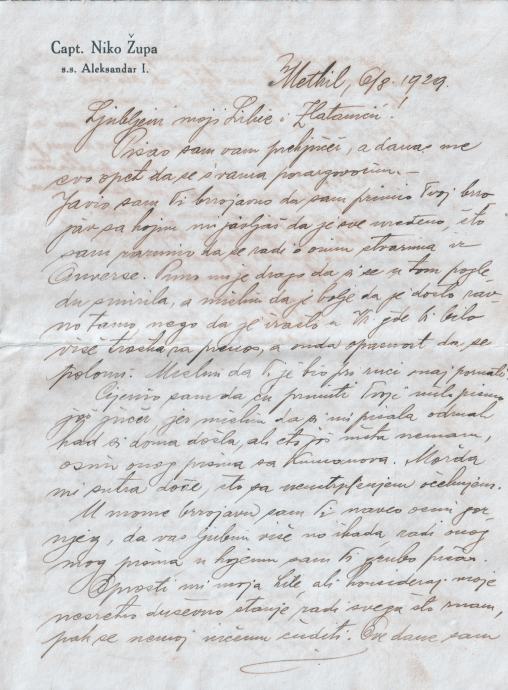 Capt. Niko Župa
s.s. Aleksandar I.
Methil, 6/8. 1929.
Ljubljeni moji Lilic i Zlatanići!
Pisao sam vam prekjučer, a danas me
evo opet da se s vama porazgovorim.-
Javio sam Ti brzojavno da sam primio Tvoj brzo
jav sa kojim mi javljaš da je sve uređeno, što
sam razumio da se radi o onim stvarima iz
Anverse. Puno mi je drago da si se u tom pogle
du smirila, a mislim da je bolje da je došlo rav-
no tamo, nego da je išlo u        gdje ti bilo
više troška za prenos, a onda opasnost da se
polomi. Mislim da ti je bio pri ruci onaj
Cijenio sam da ću primiti Tvoje milo pismo
još jučer, jer mislim da si mi pisala odmah
kad si doma došla, ali eto još ništa nemam,
osim onog pisma sa Kumanova. Možda
mi sutra dođe, što sa nestrpljenjem očekujem.
U mome brzojavu sam Ti naveo osim gor
njeg, da vas ljubim više no ikada radi onog
mog pisma u kojemu sam ti grubo pisao.
Oprosti mi moja Lile, ali konsideraj moje
nesretno duševno stanje radi svega što imam,
pak se nemoj ničemu čuditi. Ove dane sam